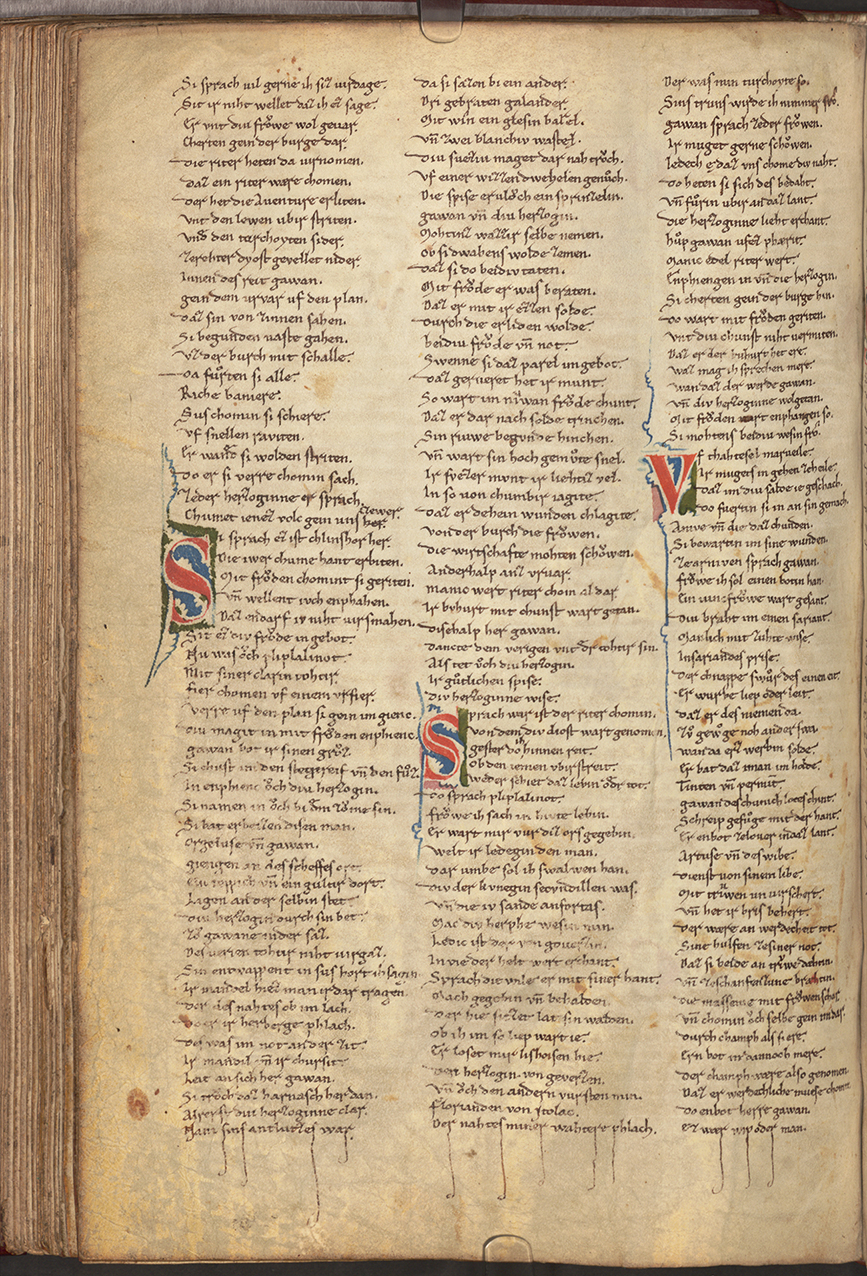 Si sprach vil gerne ih sil virdage.
Sit ir niht wellet daz ih ez sage.
Er vnt div frôwe wol gevar.
Cherten gein der burge dar.
die riter heten da virnomen.
daz ein riter ware chomen.
der het die Aventure erliten.
vnt den lewen vbir striten.
vnd den torchoyten sider.
zerehter dyost gevellet nider.
Innen des reit gawan.
gein dem vrvar vf den plan.
daz sin von zinnen sahen.
Si begunden naste gahen.
vz der burch mit schalle.
da fûrten si alle.
Riche baniere.
Sus chomin si schiere.
vf snellen raviten.
Er wand si wolden striten.
do er si verre chomin sach.
zeder herzoginne er sprach.
Chumet ienez volc gein uns zewer
Si sprach ez ist chlinshor her.
die iwer chume hant erbiten.
Mit frôden chomint si geriten.
vnd wellent ivch enphahen.
daz endarf iv niht virsmahen.
Sit ez div frôde in gebot.
Nu was ôch pliplalinot.
Mit siner clarin tohtir
fier chomen vf einem vrfier.
verre vf den plan si goin im gienc.
div magit in mit frôden enphienc.
gawan bot ir sinen grûz.
Si chust im den stegereif vnd den fûz.
In enphienc ôch div herzogin.
Si namen in ôch bi dem zôme sin.
Si bat erbeizen disen man.
Orgeluse vnd gawan.
giengen an des scheffes ort.
Ein teppich vnd ein gultir dort.
Lagen an der selbin stet.
div herzogin durch sin bet.
zô gawane nider saz.
des verien tohtir niht virgaz.
Sin entwappent in sus hort ih sagin.
Ir mandel hiez man ir dar tragen.
der des nahtes ob im lach.
do er ir herberge phlach.
des was im not an der zit.
Ir mandil vnd ir chursit.
Leit an sich her gawan.
Si trôch daz harnasch her dan.
Alrerst div herzoginne clar.
Nam sins antlutzes war.
da si sazen bi ein ander.
dri gebraten galander.
Mit win ein glesin bazel.
vnd zwei blanchiv wastel.
div suezziv maget dar nah trôch.
vf einer wizzen dwehelen genuch.
die spise ervlôch ein sprinzelin.
gawan vnd div herzogin.
Mohtinz wazzir selbe nemen.
Ob si dwahens wolde zemen.
daz si do beidiv taten.
Mit frôde er was beraten.
daz er mit ir ezzen solde.
durch die er liden wolde.
beidiv frôde vnd not.
Swenne si daz parel im gebot.
daz gerueret het ir munt.
So wart im nûwan frôde chunt.
daz er dar nach solde trinchen.
Sin ruwe begunde hinchen.
vnd wart sin hoch gemûte snel.
Ir sûezer munt ir liehtiz vel.
In so von chumbir iagite.
daz er dehein wunden chlagite.
von der burch die frôwen.
die wirtschafte mohten schôwen.
Anderhalp anz vrvar.
manic wert riter chom al dar
Ir buhurt mit chunst wart getan.
disehalp her gawan.
dancte dem verigen vnd der tohtir sin.
Als tet ôch div herzogin.
Ir gûtlichen spise.
div herzoginne wise.
Sprach war ist der riter chomin.
von dem div diost wart genomen.
gester do ih hinnen reit.
Ob den iemen vbirstreit.
weder schiet daz lebin oder tot.
do sprach pliplalinot.
frôwe ih sach in hivte lebin.
Er wart mir vur dil ors gegebin.
welt ir ledegin den man.
dar umbe sol ih swalwen han.
div der kvnegin secundillen was.
vnd die iv sande anfortas.
Mac div herphe wesin min.
Ledic ist der von goverzin.
Sprach div vnde er mit siner hant.
Mach gegebin vnd behalden.
der hie sizzet lat sin walden.
Ob ih im so liep wart ie.
Er loset mir lishoisen hie.
den herzogin von goverzin.
vnd ôch den andern vursten min.
florianden von itolac.
der nahtes miner wahtere phlach.
der was min turchoyte so.
Sins truns wirde ih nimmer frô.
gawan sprach zeder frôwen.
Ir muget gerne schôwen.
Ledech e daz uns chome div naht.
do heten si sich des bedaht.
vnd fûrin vbir an daz lant.
die herzoginne lieht erchant.
hûp gawan vf ez phærit.
Manic edel riter wert.
Enphiengen in vnd die herzogin.
Si cherten gein der burge hin.
do wart mit frôden geriten.
vnt div chunst niht vermiten.
daz er der buhurt het ere.
waz mag ih sprechen mere.
wan daz der werde gawan.
vnd div herzoginne wolgetan.
Mit frôden wart enphangen so.
Si mohtens beidiv wesin frô.
Vf chahtel marveile.
Ir mugets im gehen zeheile.
daz im div salde ie geschach.
do fuerin si in an sin gemach.
Arnive vnd die daz chunden.
Si bewartin im sine wunden.
ze arniven sprach gawan.
frôwe ih sol einen botin han.
Ein iuncfrôwe wart gesant.
div braht im einen sariant.
Marlich mit zuhte wise.
In sariandes prise.
der chnappe swûr des einen eit.
Er wurbe liep oder leit.
daz er des niemen da.
zô gewôge noch ander swa.
wan da erz werbin solde.
Er bat daz man im holde.
Tinten vnd permit.
gawan des chunich lotes chint.
Schreip gefûge mit der hant.
Er enbot zelover in daz lant.
Artuse vnd des wibe.
dienst von sinem libe.
Mit trûwen un virschert.
vnd het ir bris behert.
der wære an werdecheit tot.
Sine hulfen zesiner not.
daz si beide an trûwe dahtin.
vnd zeschanfenzune brahtin.
die massenie mit frôwen scher
vnd chomin ôch selbe gein im dar.
durch champh alf fiere.
Ern bot in dannoch mere.
der champh were also genomen.
daz er werdechliche muese chomen
do enbot herre gawan.
Ez weer wip oder man.